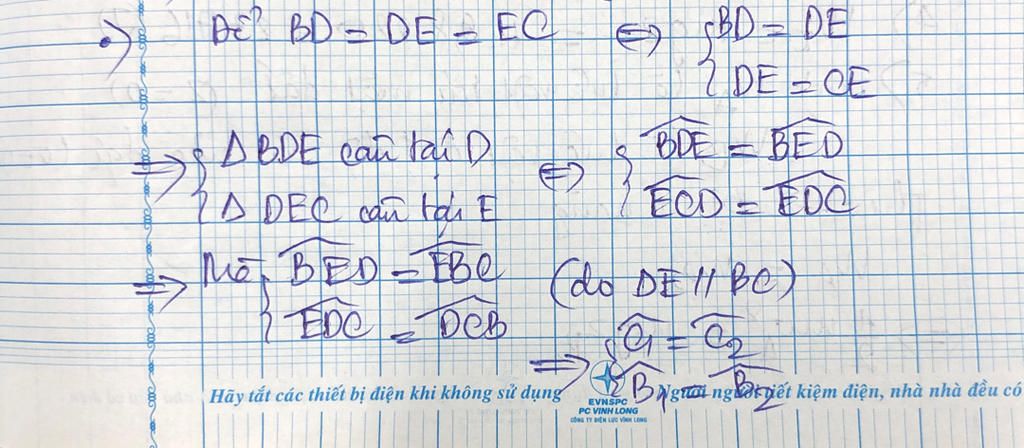 •) Để BD = DE = EC ⇔ { BD = DE
DE = CE
⇒ { Δ BDE cân tại D ⇔ { \widehat{BDE} = \widehat{BED}
Δ DEC cân tại E \widehat{ECD} = \widehat{EDC}
⇒ Mà { \widehat{BED} = \widehat{EBC} (do DE // BC)
\widehat{EDC} = \widehat{DCB}
⇒ { \widehat{C_1} = \widehat{C_2}
\widehat{B_1} = \widehat{B_2}
Hãy tắt các thiết bị điện khi không sử dụng
EVNSPC
PC VINH LONG
CÔNG TY ĐIỆN LỰC VĨNH LONG
Người người tiết kiệm điện, nhà nhà đều có